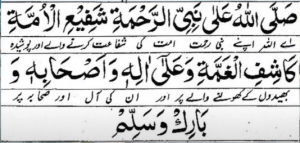 صَلَّى اللهُ عَلٰى نَبِيِّ الرَّحْمَةِ شَفِيْعِ الْاُمَّةِ
اے اللہ اپنے نبی رحمت امت کی شفاعت کرنے والے اور پوشیدہ
كَاشِفِ الْغُمَّةِ وَعَلٰى اٰلِهٖ وَاَصْحَابِهٖ وَ
بھیدوں کے کھولنے والے پر اور ان کی آل اور صحابہ پر
بَارِكْ وَسَلِّمْ